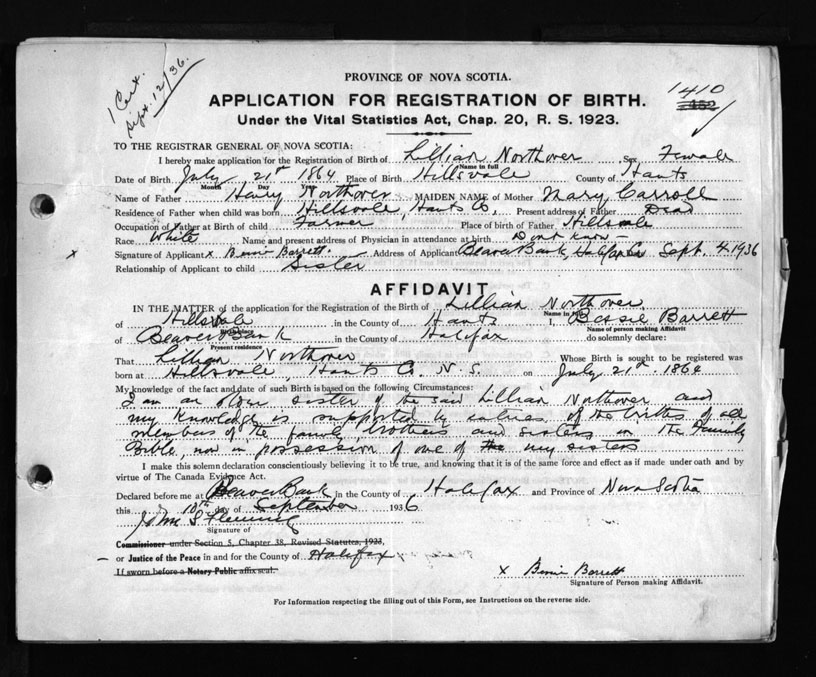 1 Cert.
Sept. 12/36.
PROVINCE OF NOVA SCOTIA.
1410
APPLICATION FOR REGISTRATION OF BIRTH.
452
Under the Vital Statistics Act, Chap. 20, R. S. 1923.
TO THE REGISTRAR GENERAL OF NOVA SCOTIA:
I hereby make application for the Registration of Birth of Lillian Northover, Sex Female
Name in full
Date of Birth July 21st 1864 Place of Birth Hillsvale County of Hants
Month Day Year
Name of Father Northover MAIDEN NAME of Mother Mary Carroll
Residence of Father when child was born Hillsvale, Hants Co, Present address of Father Dead
Occupation of Father at Birth of child Farmer Place of birth of Father Hillsvale
Race White Name and present address of Physician in attendance at birth Dont know
x Signature of Applicant x Barrett. Address of Applicant Beaver Bank Halifax Co Sept. 4, 1936
Relationship of Applicant to child Sister
AFFIDAVIT
IN THE MATTER of the application for the Registration of the Birth of Lillian Northover
Name in full
of Hillsvale in the County of Hants I, Bessie Barrett
Birthplace Name of person making Affidavit
of Beaver Bank in the County of Halifax do solemnly declare:
Present residence
That Lillian Northover Whose Birth is sought to be registered was
born at Hillsvale, Hants Co. N. S. on July 21st 1864
My knowledge of the fact and date of such Birth is based on the following Circumstances:
I am an older sister of the said Lillian Northover and
my knowledge is supported by entries of the births of all
members of the family, brothers and sisters in the Family
Bible, now in possession of one of the my sisters
I make this solemn declaration conscientiously believing it to be true, and knowing that it is of the same force and effect as if made under oath and by
virtue of The Canada Evidence Act.
Declared before me at Beaver Bank in the County of Halifax and Province of Nova Scotia
this 10th day of September 1936
John S Fleming
Signature of
Commissioner under Section 5, Chapter 38, Revised Statutes, 1923,
or Justice of the Peace in and for the County of Halifax
If sworn before a Notary Public affix seal.
x Barrett
Signature of Person making Affidavit.
For Information respecting the filling out of this Form, see Instructions on the reverse side.